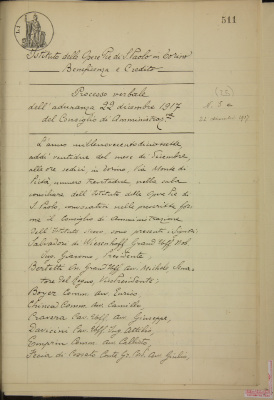 511
Istituto delle Opere Pie di S. Paolo in Torino
Beneficenza e Credito
Processo verbale
dell'adunanza 22 dicembre 1917
del Consiglio di Amministraz.
N. 5
22 dicembre 1917
L'anno millenovecentodiciassette
addì ventidue del mese di Dicembre,
alle ore sedici, in Torino, Via Monte di
Pietà, numero trentadue, nella sala
consiliare dell'Istituto delle Opere Pie di
S. Paolo, convocatosi nelle prescritte for-
me il Consiglio di Amministrazione
dell'Istituto stesso, sono presenti i Signori:
Salvadori di Wiesenhoff Grand' Uff. Nob.
Ing. Giacomo, Presidente;
Bertetti Gr. Grand' Uff. Avv. Michele Sena-
tore del Regno, Vicepresidente;
Boyer Comm. Avv. Enrico,
Comm. Avv. Camillo,
Cravera Cav. Uff. Avv. Giuseppe,
Davicini Cav. Uff. Ing. Attilio,
Comm. Avv. Callisto,
Avv. Giulio,